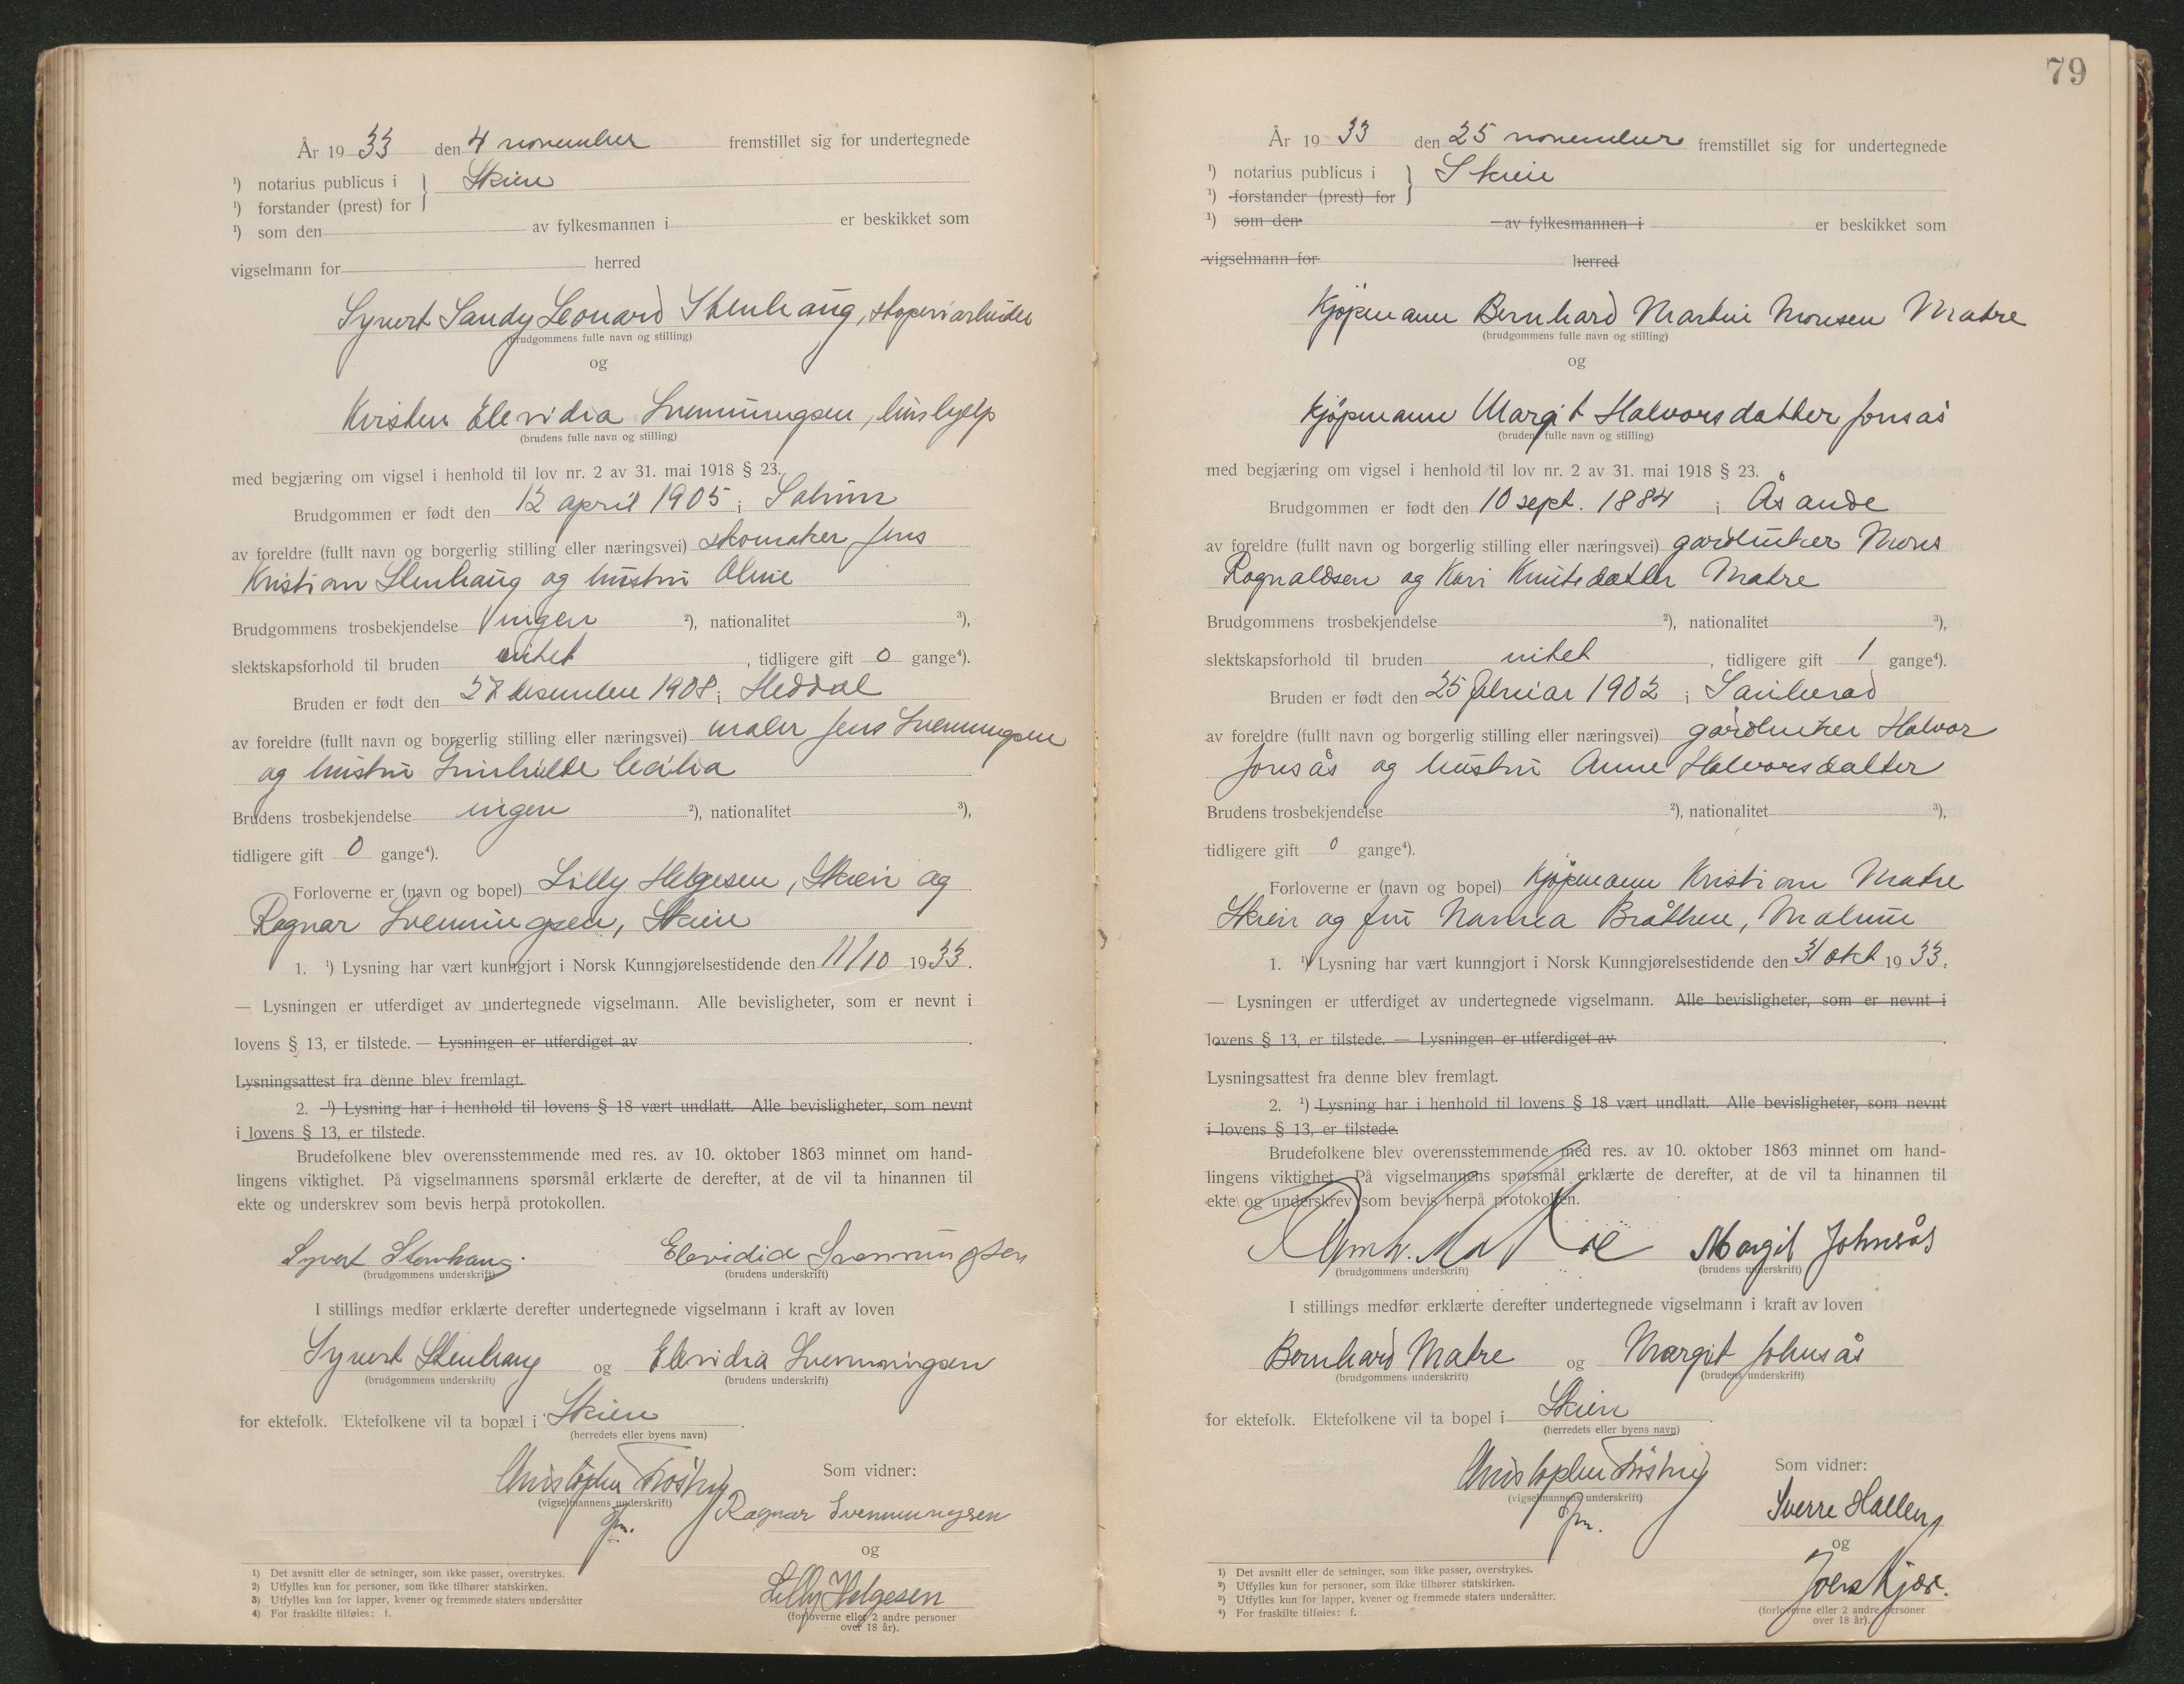 År 19 33 den 4 november fremstillet sig for undertegnede
¹) notarius publicus i } Skien
¹) forstander (prest) for
¹) som den av fylkesmannen i er beskikket som
vigselmann for herred
Syvert Sandy Leonard Stenhaug, støperiarbeider
(brudgommens fulle navn og stilling)
og
Kirsten Elevidia Svenningsen, hushjelp
(brudens fulle navn og stilling)
med begjæring om vigsel i henhold til lov nr. 2 av 31. mai 1918 § 23.
Brudgommen er født den 12 april 1905 i Solum
av foreldre (fullt navn og borgerlig stilling eller næringsvei) skomaker Jens
Kristian Stenhaug og hustru Oline
Brudgommens trosbekjendelse ingen ²), nationalitet ³),
slektskapsforhold til bruden intet, tidligere gift 0 gange⁴).
Bruden er født den 27 desember 1908 i Heddal
av foreldre (fullt navn og borgerlig stilling eller næringsvei) maler Jens Svenningsen
og hustru Cecilia
Brudens trosbekjendelse ingen ²), nationalitet ³),
tidligere gift 0 gange⁴).
Forloverne er (navn og bopel) Lilly Helgesen, Skien og
Ragnar Svenningsen, Skien
1. ¹) Lysning har vært kunngjort i Norsk Kunngjørelsestidende den 11/10 1933.
— Lysningen er utferdiget av undertegnede vigselmann. Alle bevisligheter, som er nevnt i
lovens § 13, er tilstede. — Lysningen er utferdiget av .
Lysningsattest fra denne blev fremlagt.
2. ¹) Lysning har i henhold til lovens § 18 vært undlatt. Alle bevisligheter, som nevnt
i lovens § 13, er tilstede.
Brudefolkene blev overensstemmende med res. av 10. oktober 1863 minnet om hand-
lingens viktighet. På vigselmannens spørsmål erklærte de derefter, at de vil ta hinannen til
ekte og underskrev som bevis herpå protokollen.
Syvert Stenhaug. Elevidia Svenningsen
(brudgommens underskrift) (brudens underskrift)
I stillings medfør erklærte derefter undertegnede vigselmann i kraft av loven
Syvert Stenhaug og Elevidia Svenningsen
(brudgommens underskrift) (brudens underskrift)
for ektefolk. Ektefolkene vil ta bopæl i Skien .
(herredets eller byens navn)
Christopher Frøstrup Som vidner:
(vigselmannens underskrift)
Ragnar Svenningsen
og
Lilly Helgesen
(forloverne eller 2 andre personer
over 18 år).
1) Det avsnitt eller de setninger, som ikke passer, overstrykes.
2) Utfylles kun for personer, som ikke tilhører statskirken.
3) Utfylles kun for lapper, kvener og fremmede staters undersåtter
4) For fraskilte tilføies: f.
79
År 19 33 den 25 november fremstillet sig for undertegnede
¹) notarius publicus i } Skien
¹) forstander (prest) for
¹) som den av fylkesmannen i er beskikket som
vigselmann for herred
Kjøpmann Bernhard Martin Monsen Matre
(brudgommens fulle navn og stilling)
og
Kjøpmann Margit Halvorsdatter Jonsås
(brudens fulle navn og stilling)
med begjæring om vigsel i henhold til lov nr. 2 av 31. mai 1918 § 23.
Brudgommen er født den 10 sept. 1884 i Åsande
av foreldre (fullt navn og borgerlig stilling eller næringsvei) gårdbruker Mons
Rognaldsen og Kari Knutsdatter Matre
Brudgommens trosbekjendelse ²), nationalitet ³),
slektskapsforhold til bruden intet, tidligere gift 1 gange⁴).
Bruden er født den 25 februar 1902 i Sauherad
av foreldre (fullt navn og borgerlig stilling eller næringsvei) gårdbruker Halvor
Jonsås og hustru Anne Halvorsdatter
Brudens trosbekjendelse ²), nationalitet ³),
tidligere gift 0 gange⁴).
Forloverne er (navn og bopel) Kjøpmann Kristian Matre
Skien og fru Bråthen, Melum
1. ¹) Lysning har vært kunngjort i Norsk Kunngjørelsestidende den 31 okt 19 33.
— Lysningen er utferdiget av undertegnede vigselmann. Alle bevisligheter, som er nevnt i
lovens § 13, er tilstede. — Lysningen er utferdiget av .
Lysningsattest fra denne blev fremlagt.
2. ¹) Lysning har i henhold til lovens § 18 vært undlatt. Alle bevisligheter, som nevnt
i lovens § 13, er tilstede.
Brudefolkene blev overensstemmende med res. av 10. oktober 1863 minnet om hand-
lingens viktighet. På vigselmannens spørsmål erklærte de derefter, at de vil ta hinannen til
ekte og underskrev som bevis herpå protokollen.
Bernh. Matre Margit Johnsås
(brudgommens underskrift) (brudens underskrift)
I stillings medfør erklærte derefter undertegnede vigselmann i kraft av loven
Bernhard Matre og Margit Johnsås
(brudgommens underskrift) (brudens underskrift)
for ektefolk. Ektefolkene vil ta bopel i Skien .
(herredets eller byens navn)
Christopher Frøstrup Som vidner:
(vigselmannens underskrift)
Sverre Hallen
og
Joens Kjær.
(forloverne eller 2 andre personer
over 18 år).
¹) Det avsnitt eller de setninger, som ikke passer, overstrykes.
²) Utfylles kun for personer, som ikke tilhører statskirken.
³) Utfylles kun for lapper, kvener og fremmede staters undersåtter.
⁴) For fraskilte tilføies: f.